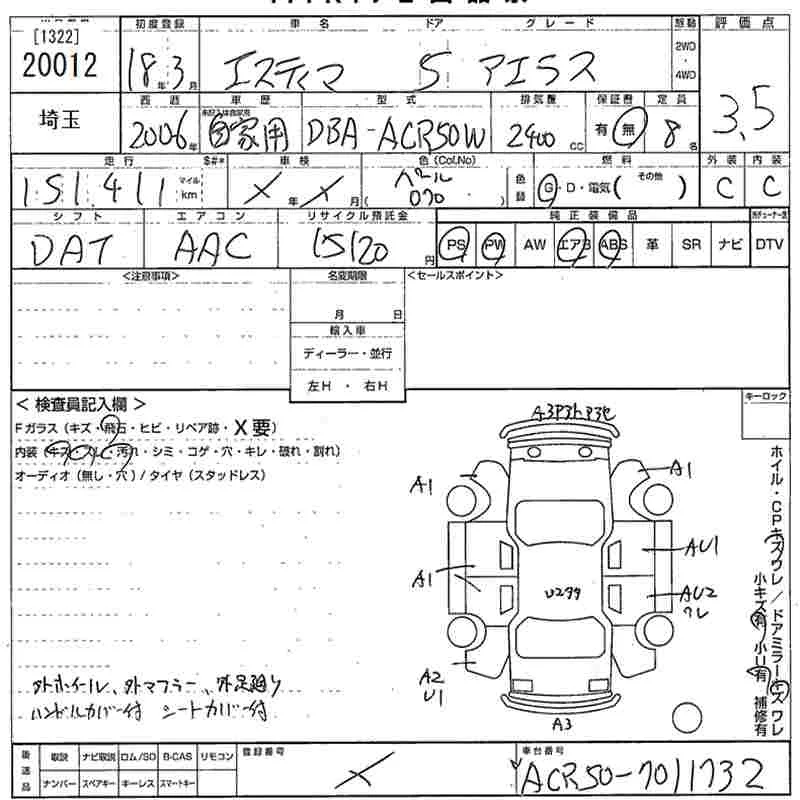 [1322]
20012
初度登録 車名 ドア グレード 駆動 評価点
18年3月 エスティマ 5 アエラス 2WD・4WD 3.5
埼玉
西暦 車歴 型式 排気量 保証書 定員
2006年 自家用 DBA-ACR50W 2400cc 有 無 8名
走行 $#* 車検 色(Col.No) 燃料 外装 内装
151,411 マイル km ×年×月 (パール 070) 色替 G・D・電気( その他 ) C C
シフト エアコン リサイクル預託金 純正装備品
DAT AAC 15120円 PS PW AW エアB ABS 革 SR ナビ DTV
<注意事項> 名変期限 <セールスポイント>
月 日
輸入車
ディーラー・並行
左H ・ 右H
< 検査員記入欄 > キーロック
Fガラス (キズ・飛石・ヒビ・リペア跡・X要)
内装 (キズ・スレ・汚れ・シミ・コゲ・穴・キレ・破れ・割れ)
オーディオ (無し・穴) / タイヤ (スタッドレス)
A3P3トヌ3セ
A1 A1
A1 AU1
U2 AU2
ワレ
A2
U1
A3
ホイル・CPキズワレ/ドアミラーキズワレ
小キズ有 小U有 補修有
外ホイール、外マフラー、外足廻り
ハンドルカバー付 シートカバー付
後送品 取説 ナビ取説 ロム/SD B-CAS リモコン 登録番号 車台番号
ナンバー スペアキー キーレス スマートキー × ACR50-7011732